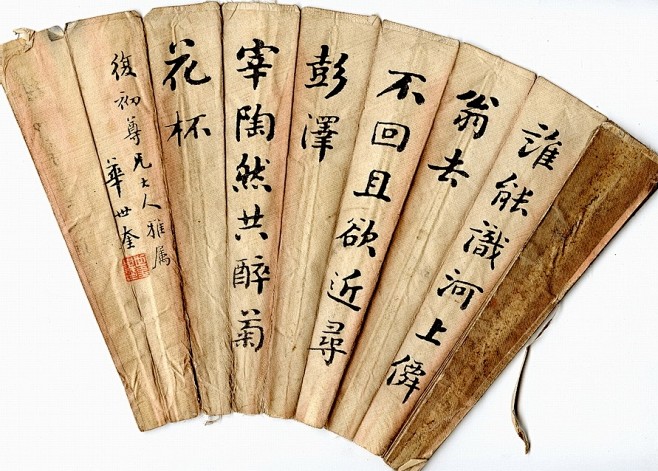 誰能識河上僊
翁去
不回且欲近尋
彭澤
宰陶然共醉菊
花杯
復初尊兄大人雅属
華世奎